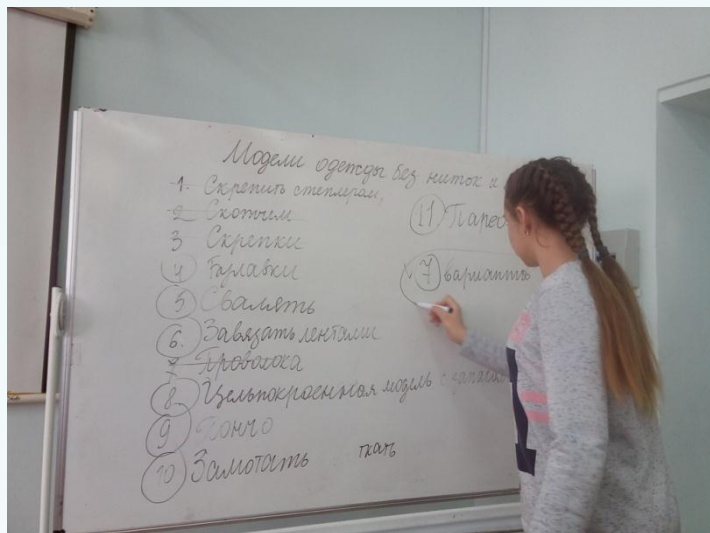 Модели одежды без ниток и
1. Скрепить степлером,
2 Скотчем
3 Скрепки
4 Булавки
5 Свалять
6. Завязать лентами
7 Проволока
8. Цельнокроенная модель с запахом
9 Пончо
10 Замотать ткань
11 Парео
7 варианты